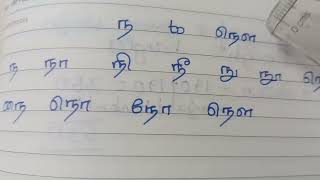 ந to நௌ
ந நா நி நீ நு நூ நெ
நை நொ நோ நௌ